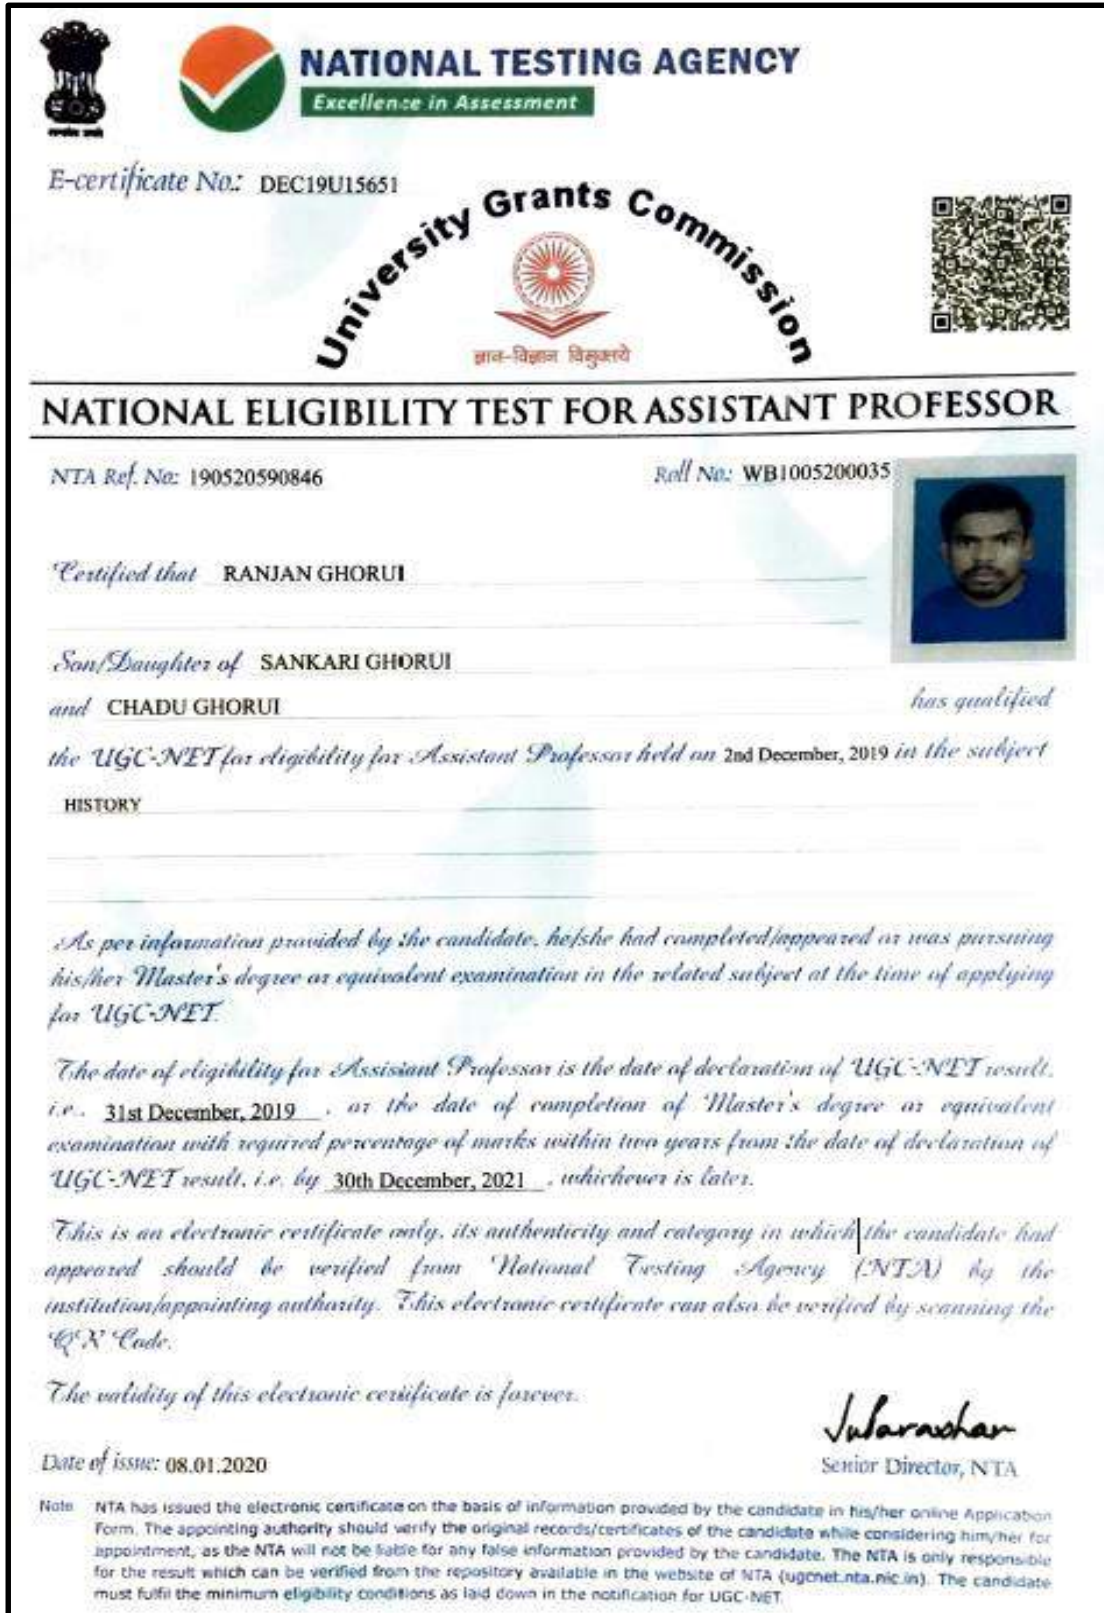 NATIONAL TESTING AGENCY
Excellence in Assessment
E-certificate No.: DEC19U15651
University Grants Commission
ज्ञान-विज्ञान विमुक्तये
NATIONAL ELIGIBILITY TEST FOR ASSISTANT PROFESSOR
NTA Ref. No: 190520590846
Roll No: WB1005200035
Certified that RANJAN GHORUI
Son/Daughter of SANKARI GHORUI
and CHADU GHORUI has qualified
the UGC-NET for eligibility for Assistant Professor held on 2nd December, 2019 in the subject
HISTORY
As per information provided by the candidate, he/she had completed/appeared or was pursuing
his/her Master's degree or equivalent examination in the related subject at the time of applying
for UGC-NET.
The date of eligibility for Assistant Professor is the date of declaration of UGC-NET result,
i.e., 31st December, 2019, or the date of completion of Master's degree or equivalent
examination with required percentage of marks within two years from the date of declaration of
UGC-NET result, i.e. by 30th December, 2021, whichever is later.
This is an electronic certificate only, its authenticity and category in which the candidate had
appeared should be verified from National Testing Agency (NTA) by the
institution/appointing authority. This electronic certificate can also be verified by scanning the
QR Code.
The validity of this electronic certificate is forever.
Date of issue: 08.01.2020
Senior Director, NTA
Note NTA has issued the electronic certificate on the basis of information provided by the candidate in his/her online Application
Form. The appointing authority should verify the original records/certificates of the candidate while considering him/her for
appointment, as the NTA will not be liable for any false information provided by the candidate. The NTA is only responsible
for the result which can be verified from the repository available in the website of NTA (ugcnet.nta.nic.in). The candidate
must fulfil the minimum eligibility conditions as laid down in the notification for UGC-NET.